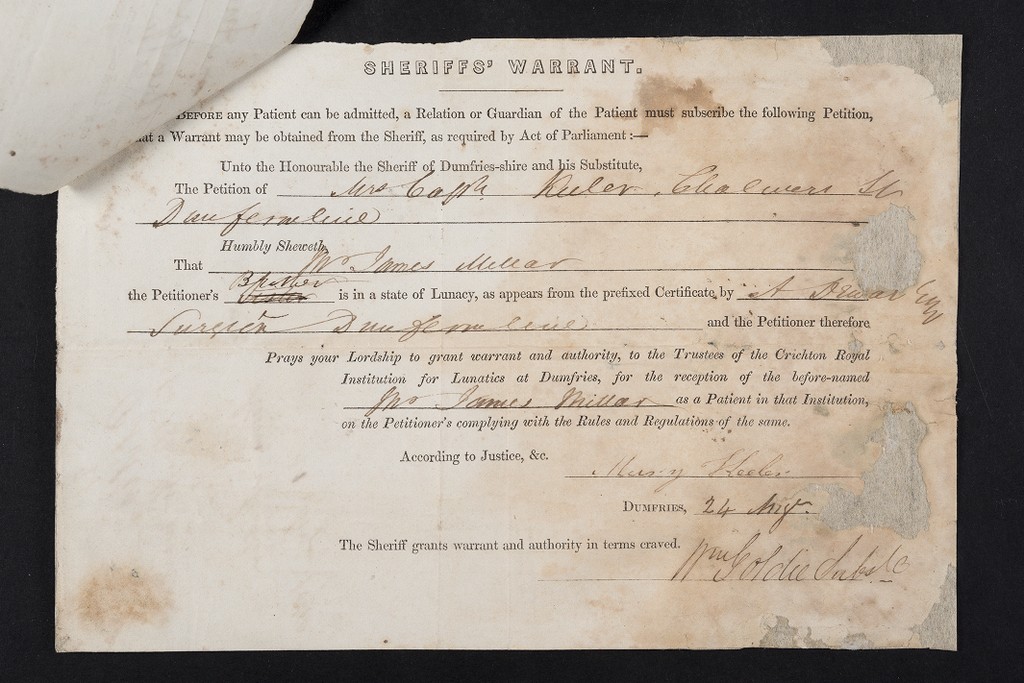 SHERIFFS' WARRANT.
BEFORE any Patient can be admitted, a Relation or Guardian of the Patient must subscribe the following Petition,
at a Warrant may be obtained from the Sheriff, as required by Act of Parliament:—
Unto the Honourable the Sheriff of Dumfries-shire and his Substitute,
The Petition of Mrs Capt. Chalmers St
Dunfermline
Humbly Sheweth,
That Mr James Millar
Brother
the Petitioner's Sister is in a state of Lunacy, as appears from the prefixed Certificate by A Dewar Esq
Surgeon Dunfermline and the Petitioner therefore
Prays your Lordship to grant warrant and authority, to the Trustees of the Crichton Royal
Institution for Lunatics at Dumfries, for the reception of the before-named
Mr James Millar as a Patient in that Institution,
on the Petitioner's complying with the Rules and Regulations of the same.
According to Justice, &c.
Mary
DUMFRIES, 24 Augt.
The Sheriff grants warrant and authority in terms craved.
Wm Goldie Subste